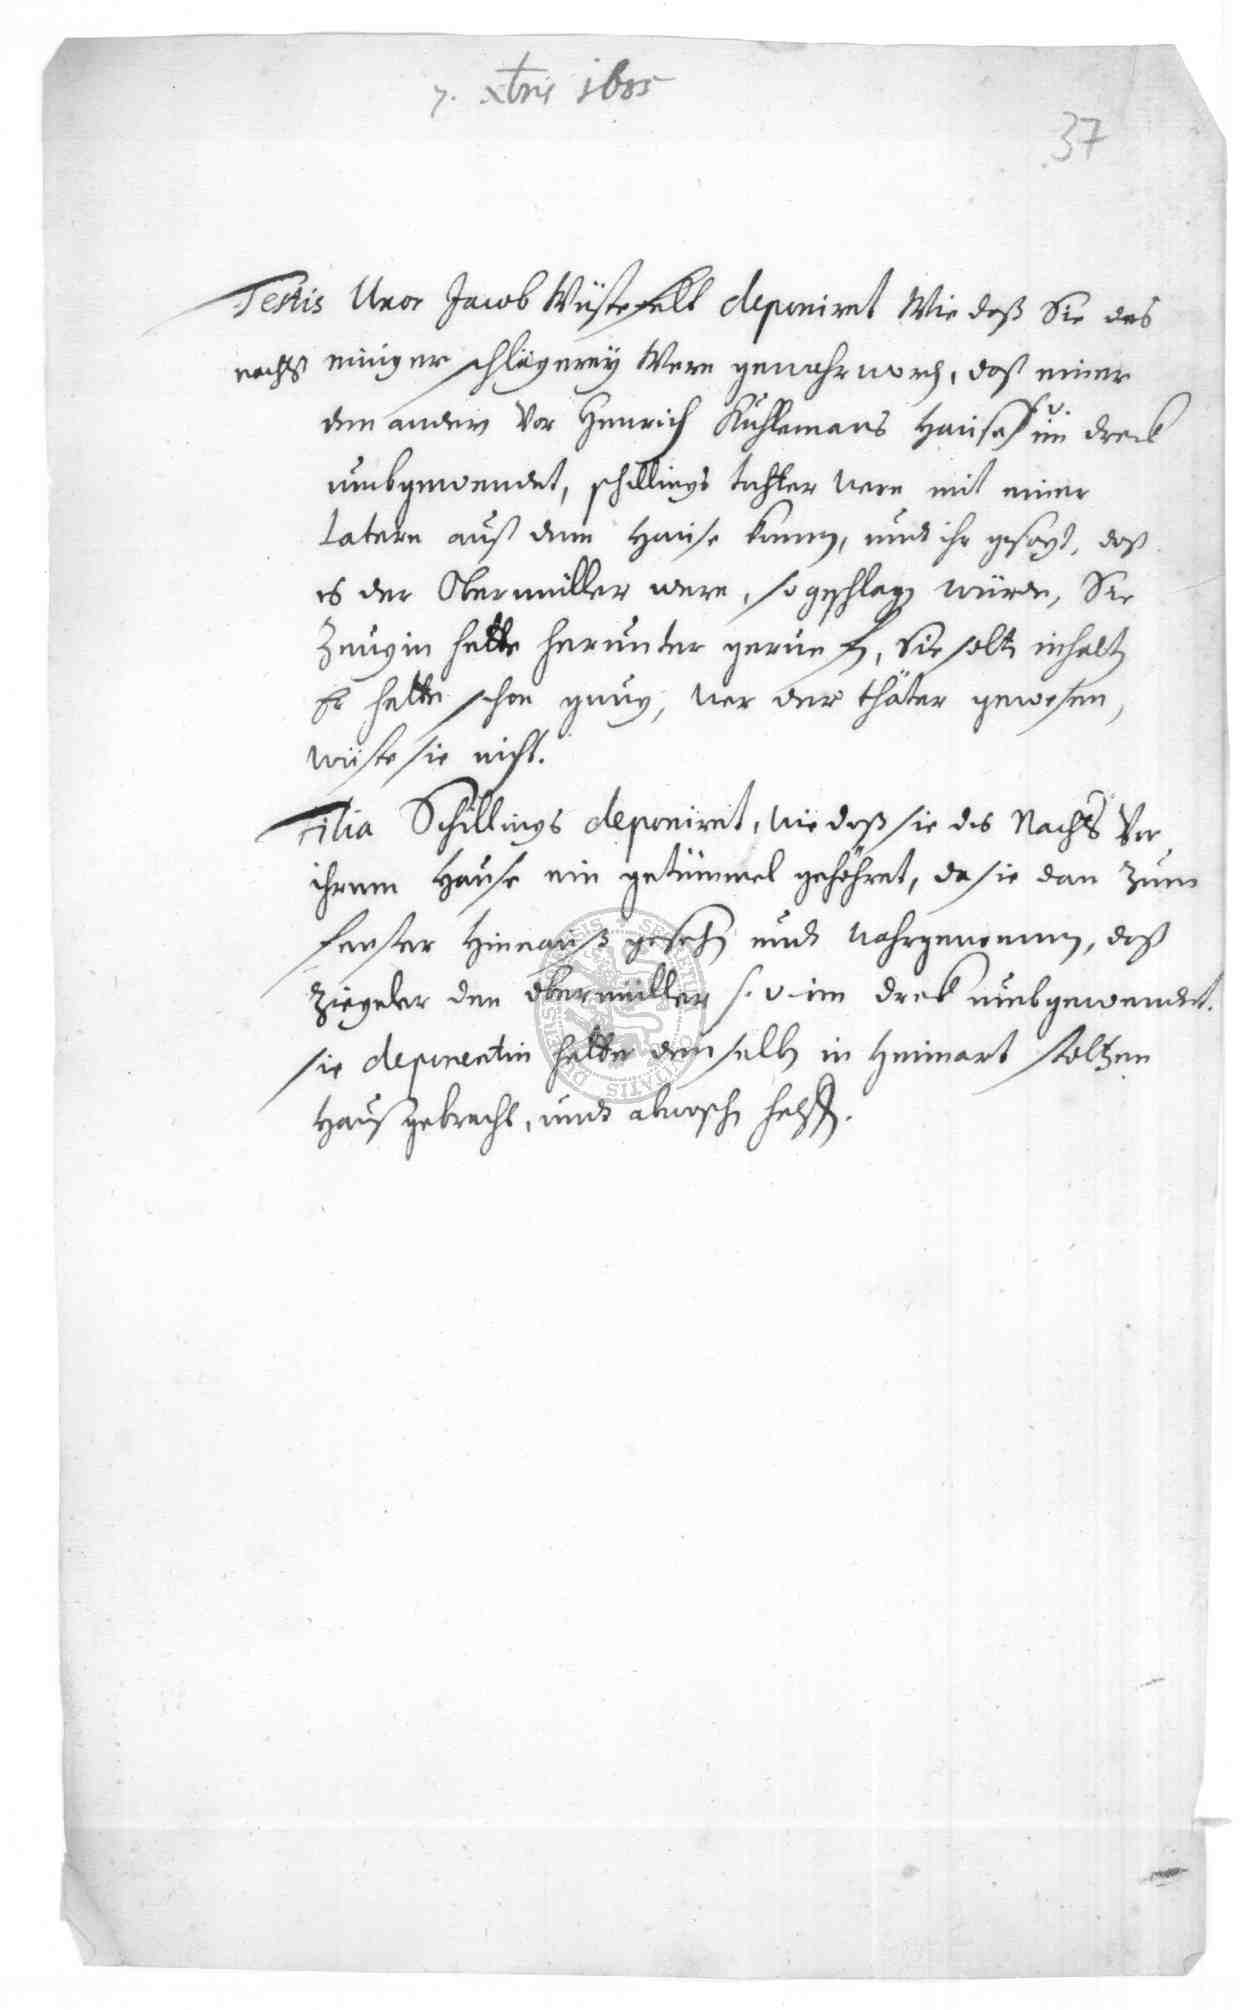 7. xbris 1685
37
Testis Uxor Jacob Wüstefelt deponiret Wie daß Sie des
nachts einiger schlägerey Were gewahr word, daß einer
den andern Vor Henrich Kuhlemans Hause s. v. im dreck
umbgewendet, schillings tochter were mit einer
Latern auß dem Hause komen, und ihr gesagt, daß
es der Obermüller were, so geschlagen würde, Sie
Zeugin hette herunder geruefen, Sie solten inhalten
Er hette schon gnug, wer der thäter gewesen,
wüste sie nicht.
Filia Schillings deponiret, wie daß sie des Nachts Vor
ihrem Hause ein getümmel gehöhret, da sie dan zum
fenster hinnauß gesehen und wahrgenommen, daß
Ziegeler den Obermüller s. v. im dreck umbgewendet.
sie deponentin hette denselben in Heimart stoltzen
Hauß gebracht, und abwaschen helffen.
SIGILLUM UNIVERSITATIS